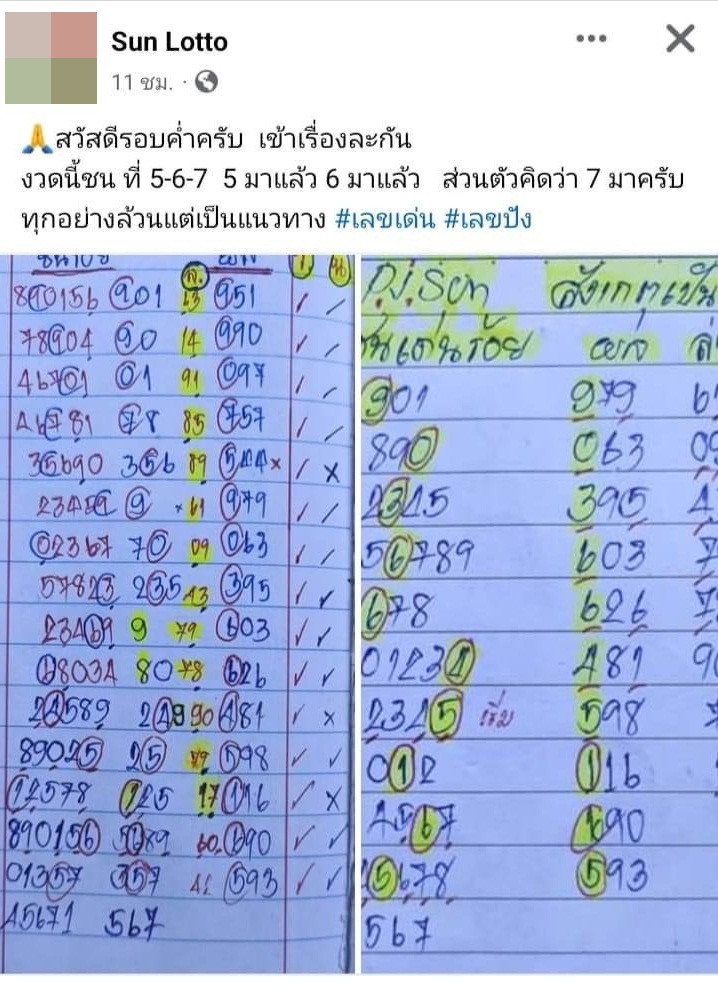 Sun Lotto
11 ชม.
🙏สวัสดีรอบค่ำครับ เข้าเรื่องละกัน
งวดนี้ชน ที่ 5-6-7 5 มาแล้ว 6 มาแล้ว ส่วนตัวคิดว่า 7 มาครับ
ทุกอย่างล้วนแต่เป็นแนวทาง #เลขเด่น #เลขปัง
ล.
890156 901 13 951
78904 90 14 990
46701 01 91 097
46781 78 85 757
35690 356 89 544 x
9 × 61 979
02367 70 09 063
57823 235 43 395
23469 9 79 603
08034 80 78 626
24589 249 90 481
89025 25 79 598
12578 125 17 116
890156 5089 60 690
01357 357 41 593
45671 567
สังเกตุเป็น
ชนเด่นร้อย ผล
901 979
890 063
2345 395
56789 603
678 626
01234 481
2345 เริ่ม 598
012 116
4567 690
5678 593
567